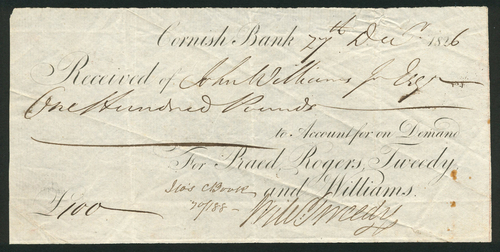 Cornish Bank 27th Decr. 1826
Received of John Williams Jr Esqr
One Hundred Pounds
to Account for on Demand
For Praed, Rogers, Tweedy
and Williams.
£100
Willm Tweedy